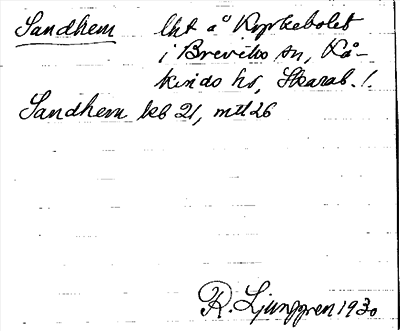 Sandhem lht å Kyrkebolet
i Breviks sn, Kå-
kinds hd, Skarab. l.
Sandhem kb 21, mtl 26
R. Ljunggren 1930